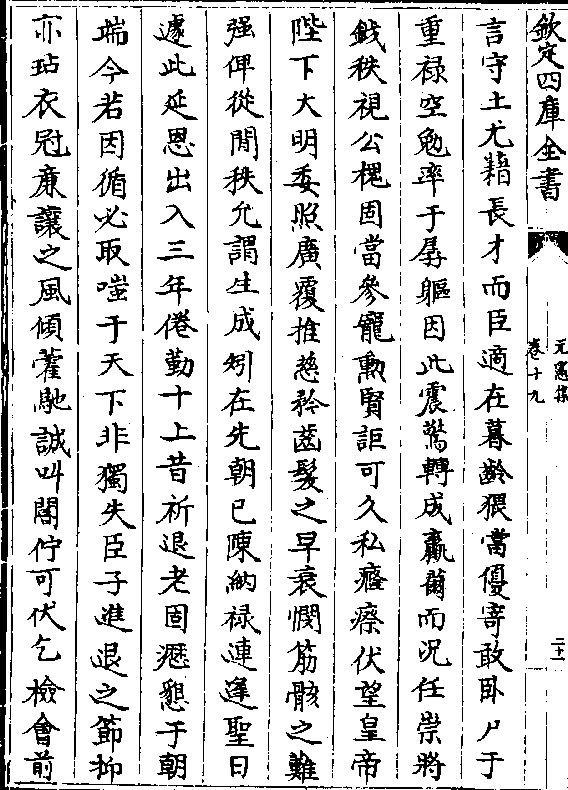 欽定四庫全書
元憲集
卷十九
二十一
言守土尤藉長才而臣適在暮齡猥當優寄敢卧尸于
重禄空勉率于孱軀因此震驚轉成羸薾而況任崇將
鉞秩視公槐固當參寵勲賢詎可久私癃瘵伏望皇帝
陛下大明委照廣覆推慈矜齒髮之早衰憫筋骸之難
强俾從閒秩允謂生成矧在先朝已陳納禄連逢聖日
遽此延恩出入三年倦勤十上昔祈退老固瀝懇于朝
端今若因循必取嗤于天下非獨失臣子進退之節抑
亦玷衣冠亷讓之風傾藿馳誠叫閽佇可伏乞檢會前